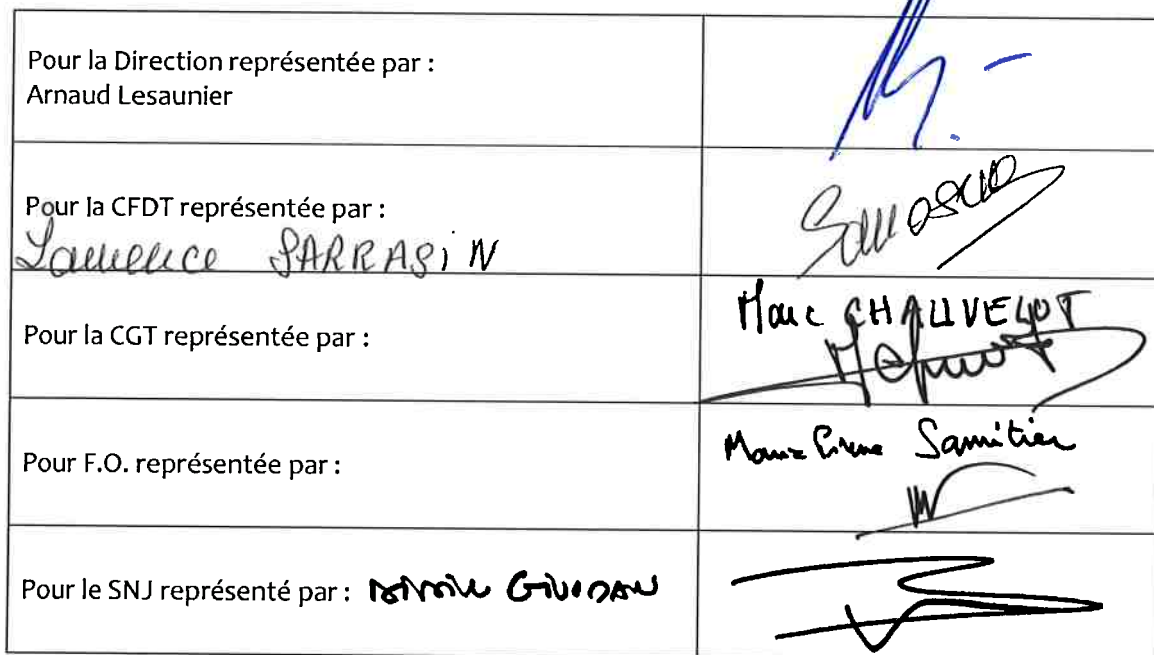 Pour la Direction représentée par :
Arnaud Lesaunier
Pour la CFDT représentée par :
Laurence SARRASIN
Pour la CGT représentée par :
Marc CHAUVELOT
Pour F.O. représentée par :
Samitier
Pour le SNJ représenté par :